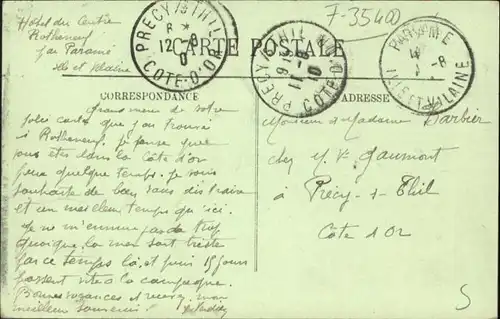 Hôtel du Centre
Rotheneuf
par Paramé
Ille et Vilaine
F-35400
CARTE POSTALE
PRECY/s THIL
CÔTE-D'OR
PRECY/s THIL
CÔTE-D'OR
PARAMÉ
ILLE-ET-VILAINE
CORRESPONDANCE
ADRESSE
Grand merci de votre
jolie carte que j'ai trouvée
à Rotheneuf. Je pense que
vous êtes dans la Côte d'or
pour quelque temps. Je vous
souhaite de bien vous distraire
et un meilleur temps qu'ici.
Je ne m'ennuie pas trop
quoique la mer soit triste
par ce temps là, et puis 15 jours
passent vite à la campagne.
Bonnes vacances et recevez mon
meilleur souvenir
Monsieur & Madame Barbier
chez M. Vve Gaumont
à Précy-s-Thil
Côte d'Or
5